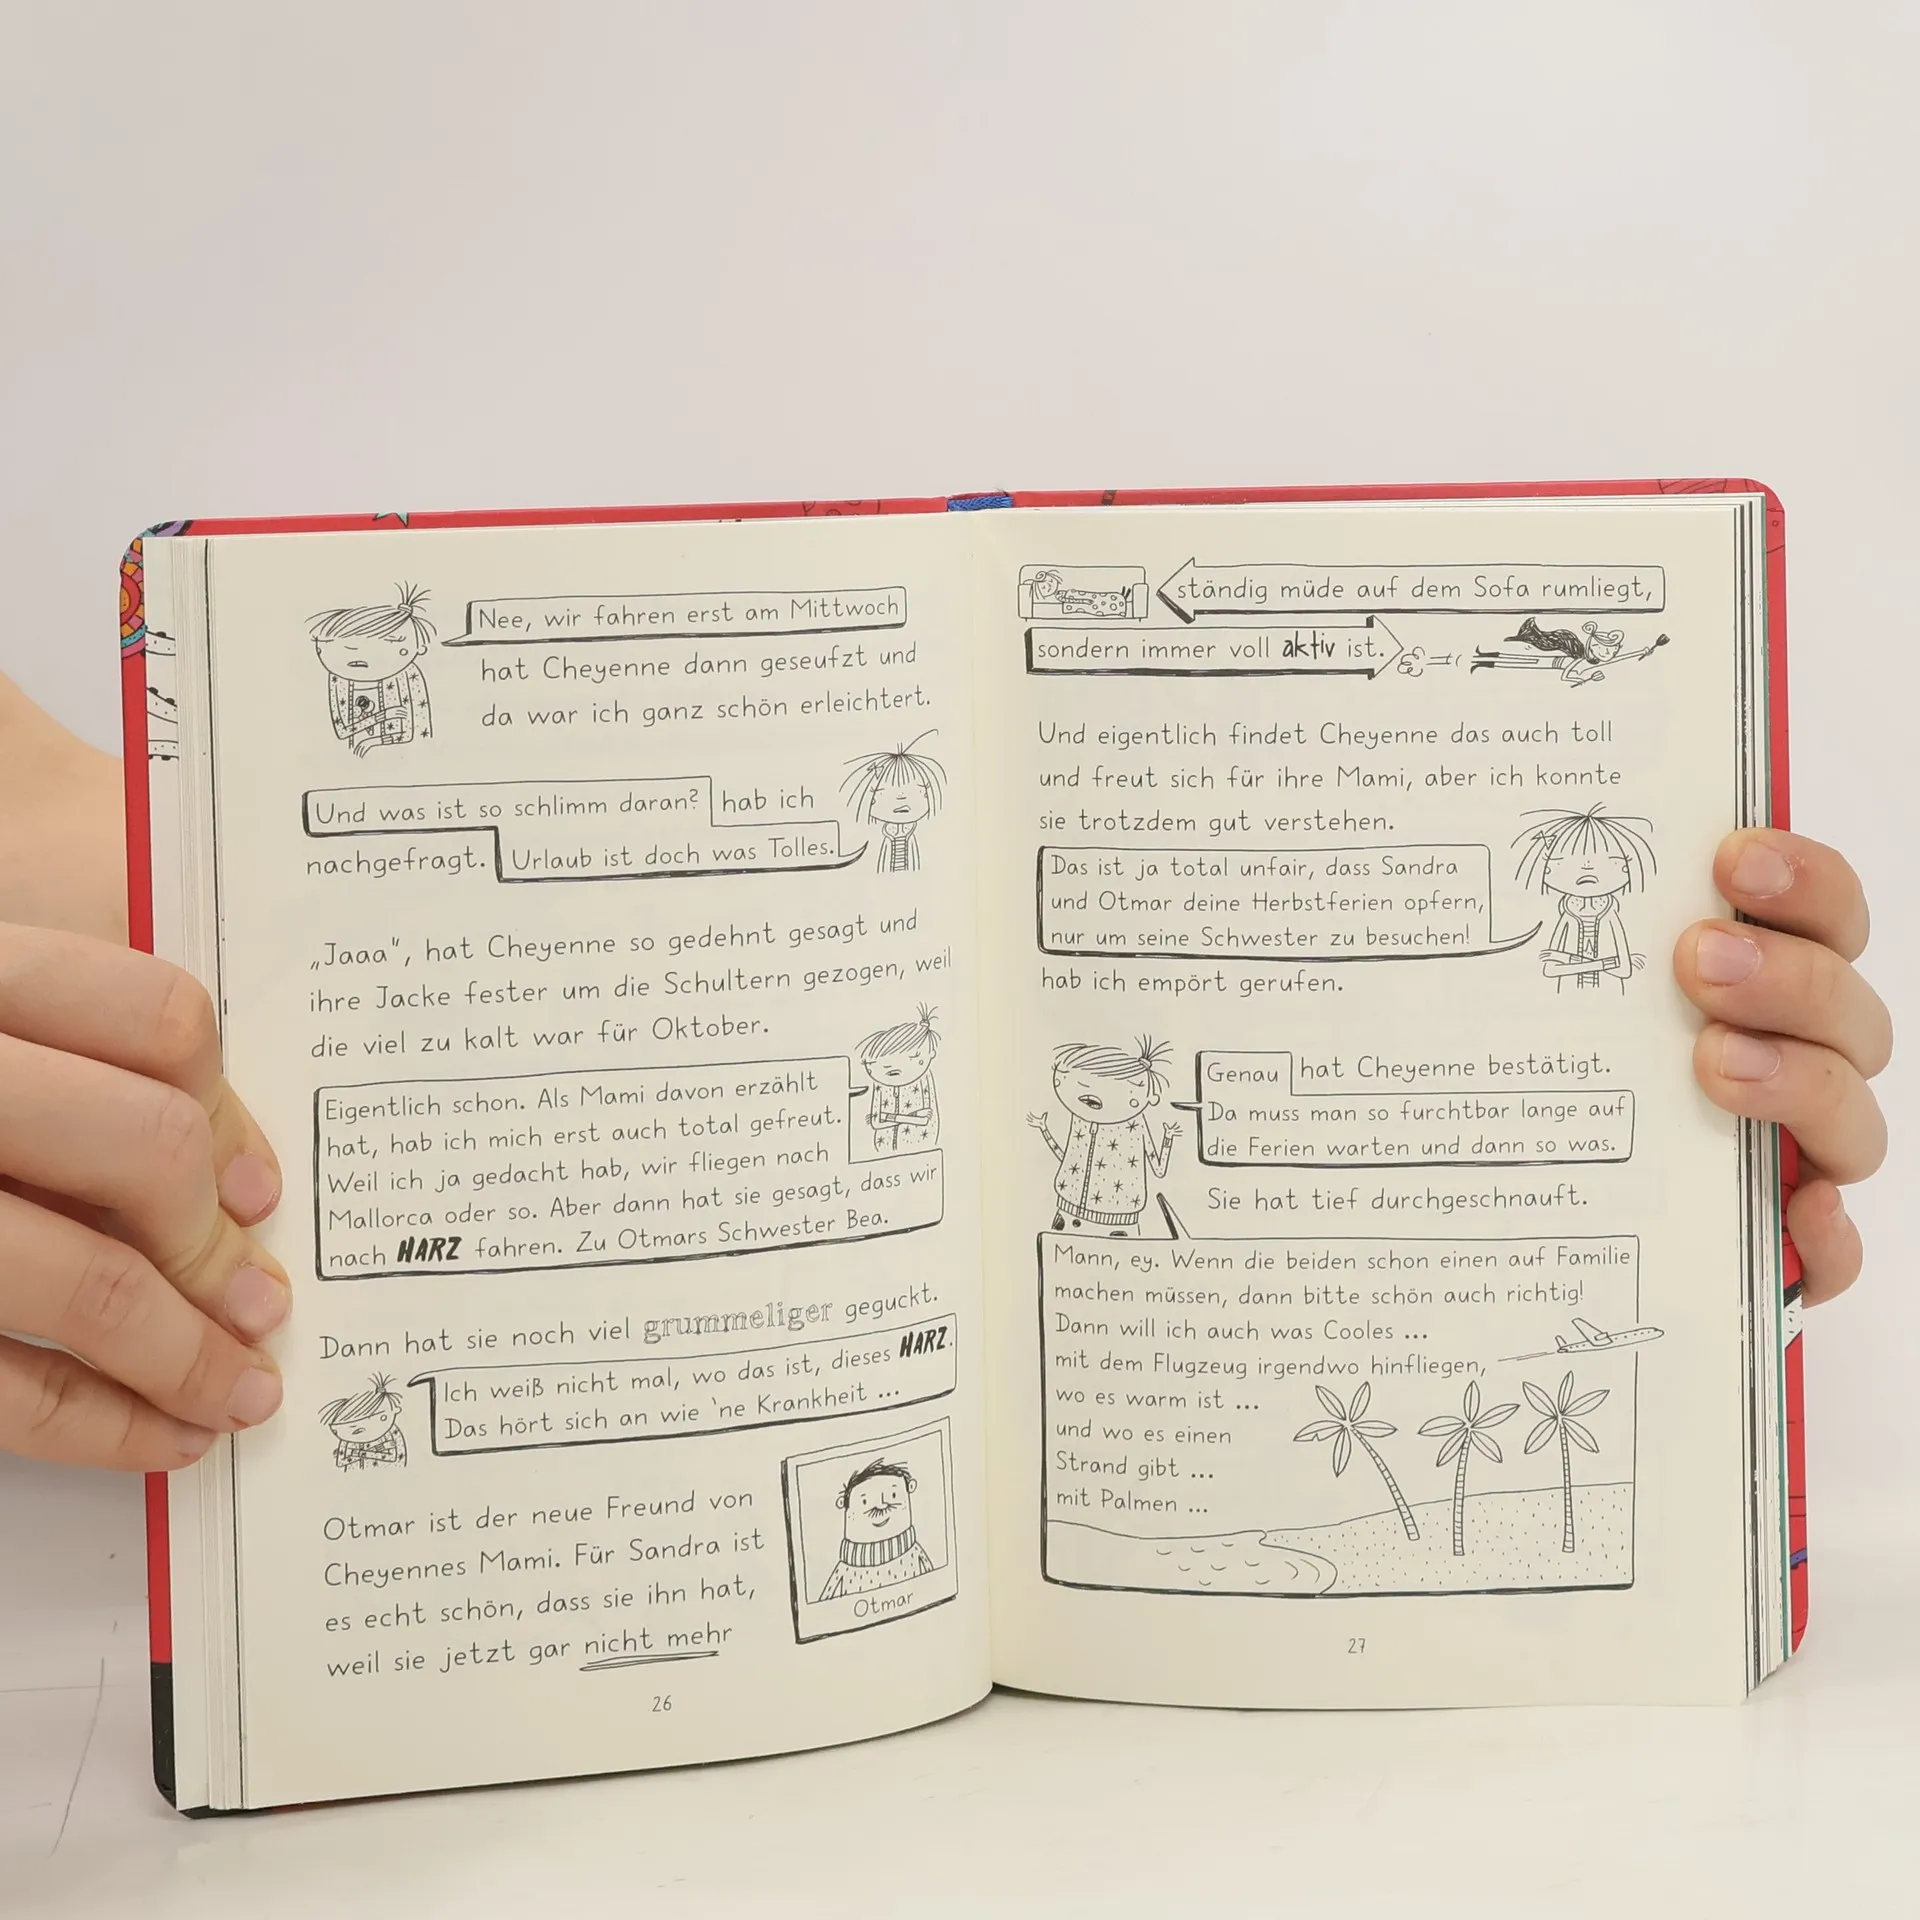 Nee, wir fahren erst am Mittwoch
hat Cheyenne dann geseufzt und
da war ich ganz schön erleichtert.
Und was ist so schlimm daran? hab ich
nachgefragt. Urlaub ist doch was Tolles.
„Jaaa", hat Cheyenne so gedehnt gesagt und
ihre Jacke fester um die Schultern gezogen, weil
die viel zu kalt war für Oktober.
Eigentlich schon. Als Mami davon erzählt
hat, hab ich mich erst auch total gefreut.
Weil ich ja gedacht hab, wir fliegen nach
Mallorca oder so. Aber dann hat sie gesagt, dass wir
nach HARZ fahren. Zu Otmars Schwester Bea.
Dann hat sie noch viel grummeliger geguckt.
Ich weiß nicht mal, wo das ist, dieses HARZ.
Das hört sich an wie 'ne Krankheit ...
Otmar ist der neue Freund von
Cheyennes Mami. Für Sandra ist
es echt schön, dass sie ihn hat,
weil sie jetzt gar nicht mehr
Otmar
26
ständig müde auf dem Sofa rumliegt,
sondern immer voll aktiv ist.
Und eigentlich findet Cheyenne das auch toll
und freut sich für ihre Mami, aber ich konnte
sie trotzdem gut verstehen.
Das ist ja total unfair, dass Sandra
und Otmar deine Herbstferien opfern,
nur um seine Schwester zu besuchen!
hab ich empört gerufen.
Genau hat Cheyenne bestätigt.
Da muss man so furchtbar lange auf
die Ferien warten und dann so was.
Sie hat tief durchgeschnauft.
Mann, ey. Wenn die beiden schon einen auf Familie
machen müssen, dann bitte schön auch richtig!
Dann will ich auch was Cooles ...
mit dem Flugzeug irgendwo hinfliegen,
wo es warm ist ...
und wo es einen
Strand gibt ...
mit Palmen ...
27